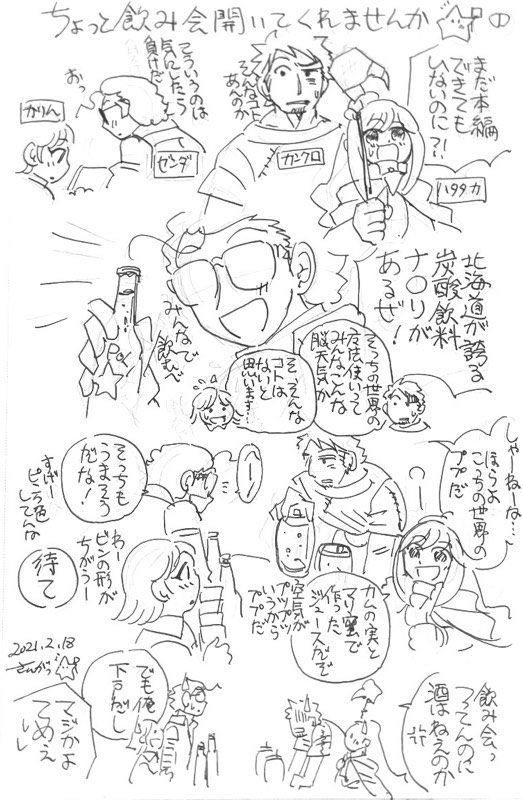 ちょっと飲み会開いてくれませんか
①
まだ本編
できても
ないのに?!
ハタタカ
そんなコト
あんのか
カンクロ
そういうのは
気にしたら
負けだ
ゼンダ
おっ
かりん
北海道が誇る
炭酸飲料
ナ○リが
あるぜ!
みんなで
飲むべ
そっちの世界の
みんなこんな
脳天気か
そ、そんな
コトは
ないと
思います…
しゃーねーな…
ほらよ
こっちの世界の
ププだ
カムの実と
マリ蜜で
作った
ジュースだぞ
空気が
プップッ
いうから
ププだ
そっちも
うまそう
だな!
すげー
ピンク色
してんな
わー
ビンの形が
ちがうー
待て
飲み会っ
つってんのに
酒はねえのか
でも俺
下戸だし
マジかよ
てめえ
2021.2.18
さんがつ